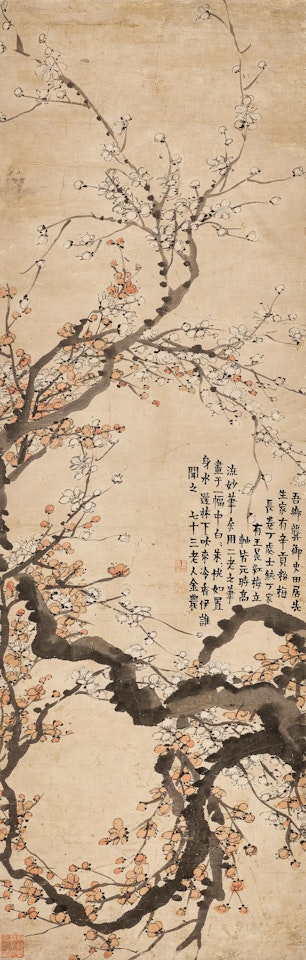 吾鄉龔御史田居先
生家有辛貢粉梅
長卷丁處士鈍丁家
有王冕紅梅立
軸皆元時高
流妙筆余用二老之筆
畫于一幅中白〻朱〻恍如置
身水邊林下味來冷香伊誰
聞之 七十三老人金農